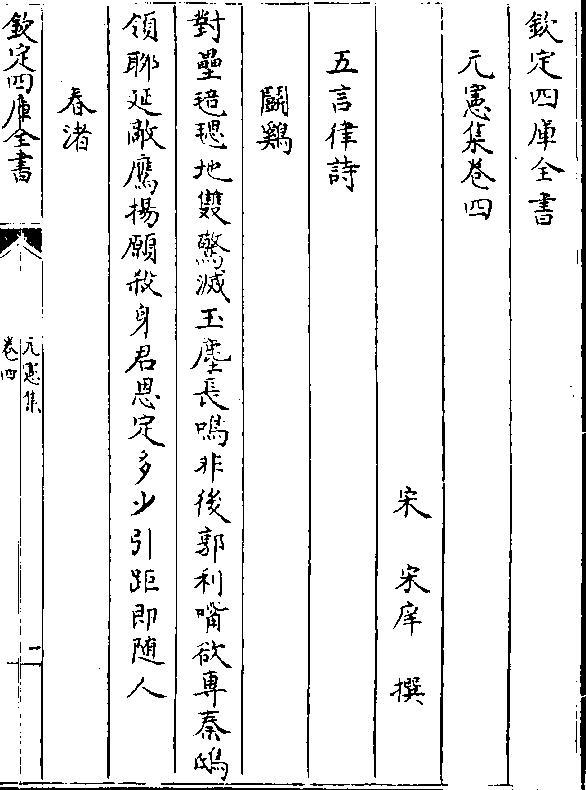 欽定四庫全書
元憲集卷四
宋 宋庠 撰
五言律詩
鬭鷄
對壘毰毸地雙驚滅玉塵長鳴非後郭利嘴欲専秦鴟
領聊延敵鷹揚願殺身君恩定多少引距即随人
春渚
欽定四庫全書
元憲集
卷四